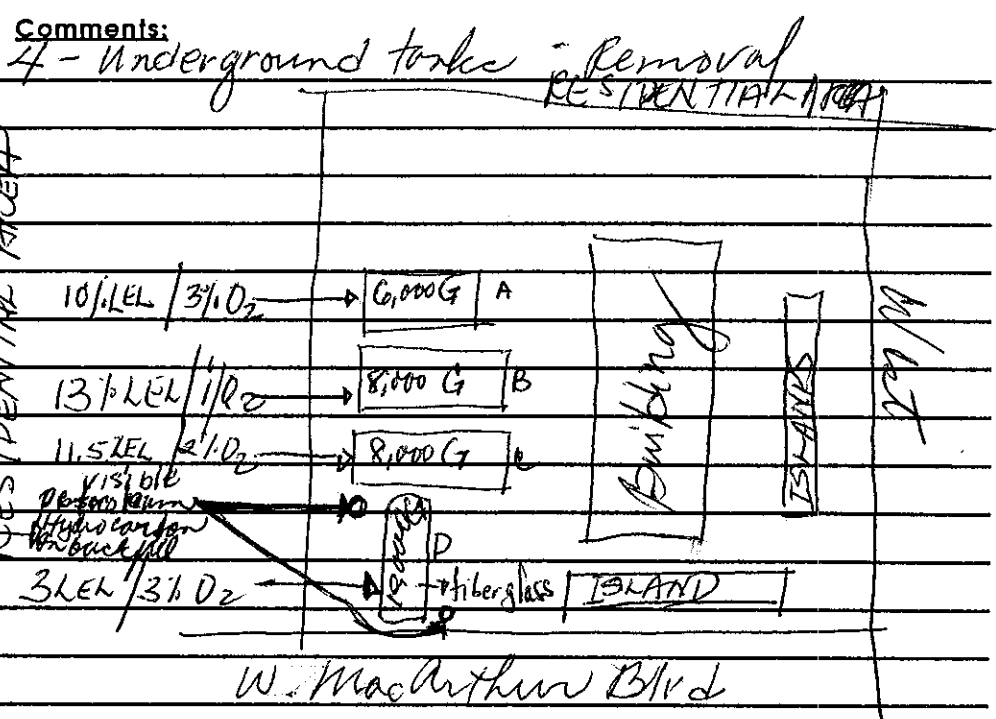 Comments:
4 - Underground tanks - Removal
RESIDENTIAL AREA
RESIDENTIAL AREA
10% LEL / 3% O2
6,000 G A
13% LEL / 1% O2
8,000 G B
11.5 LEL / 2% O2
8,000 G C
visible
petroleum
Hydrocarbon
on backfill
D
3 LEL / 3% O2
fiberglass
ISLAND
Building
ISLANDS
W. MacArthur Blvd